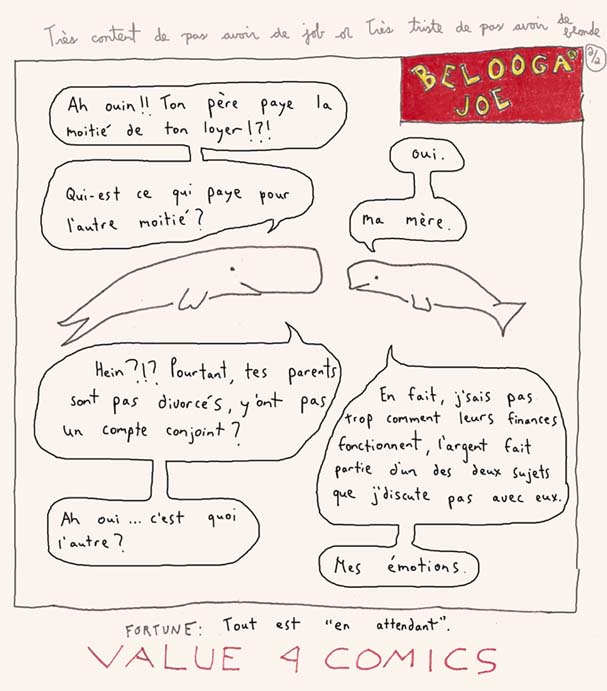 Très content de pas avoir de job ou Très triste de pas avoir de blonde
2/2
BELOOGA
JOE
Ah ouin!! Ton père paye la
moitié de ton loyer!?!
Qui-est ce qui paye pour
l'autre moitié?
oui.
ma mère.
Hein?!? Pourtant, tes parents
sont pas divorcés, y'ont pas
un compte conjoint?
En fait, j'sais pas
trop comment leurs finances
fonctionnent, l'argent fait
partie d'un des deux sujets
que j'discute pas avec eux.
Ah oui... c'est quoi
l'autre?
Mes émotions.
FORTUNE: Tout est "en attendant".
VALUE 4 COMICS